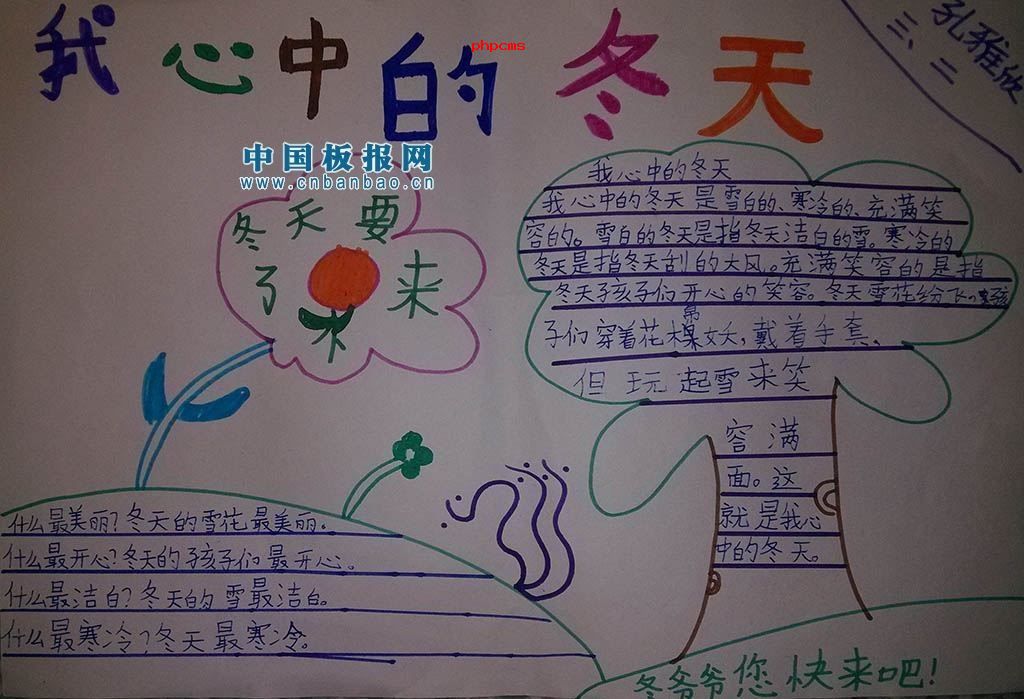 我心中的冬天
phpcms
三、二
中国板报网
www.cnbanbao.cn
冬天要
来
了
我心中的冬天
我心中的冬天是雪白的、寒冷的、充满笑
容的。雪白的冬天是指冬天洁白的雪。寒冷的
冬天是指冬天刮的大风。充满笑容的是指
冬天孩子们开心的笑容。冬天雪花纷飞
子们穿着花棉袄,戴着手套、
但玩起雪来笑
容满
面。这
就是我心
中的冬天。
什么最美丽?冬天的雪花最美丽.
什么最开心?冬天的孩子们最开心。
什么最洁白?冬天的雪最洁白。
什么最寒冷?冬天最寒冷。
冬爷爷您快来吧!